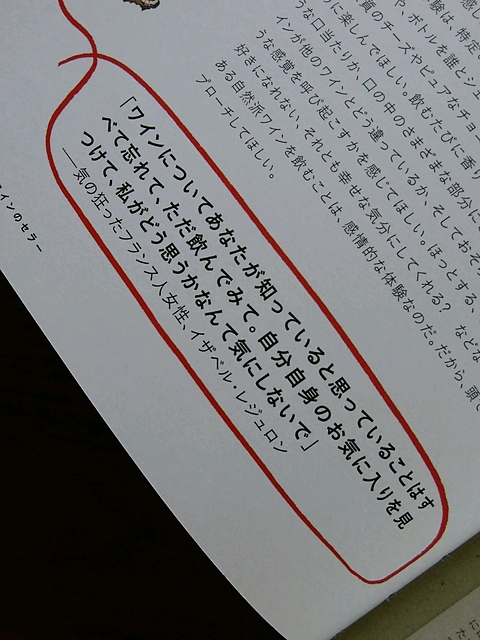 感じ
験は、特定の
や、ボトルを誰とシェ
質のチーズやピュアなチョ
に楽しんでほしい。飲むたびに香り
うな口当たりか、口の中のさまざまな部分に
インが他のワインとどう違っているか、そしておそら
うな感覚を呼び起こすかを感じてほしい。ほっとする、
好きになれない、それとも幸せな気分にしてくれる? などな
ある自然派ワインを飲むことは、感情的な体験なのだ。だから、頭で
プローチしてほしい。
「ワインについてあなたが知っていると思っていることはす
べて忘れて、ただ飲んでみて。自分自身のお気に入りを見
つけて、私がどう思うかなんて気にしないで」
──気の狂ったフランス人女性、イザベル・レジュロン
インのセラー